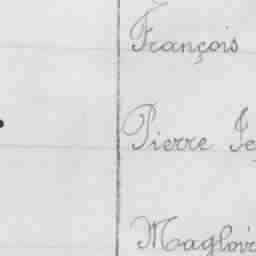 François
Pierre Je
Magloir